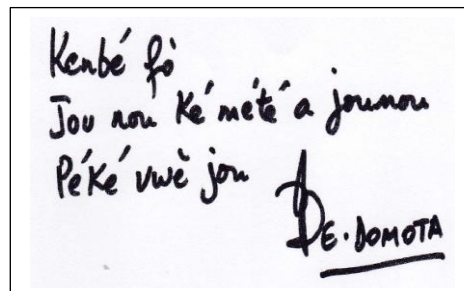 Kenbé fò
Jou nou ké mété a jounou
Péké vwè jou
E. DOMOTA